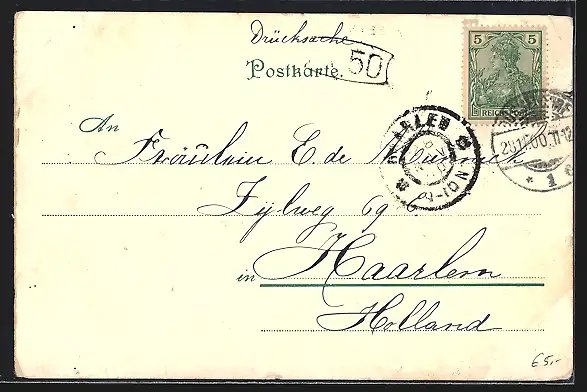 Drucksache
Postkarte.
50
5 5
REICHSPOST
HAARLEM
28.11.00. 11-12
* 1
An
Fräulein E. de Munnick
Zijlweg 69.
in Haarlem
Holland
65.-